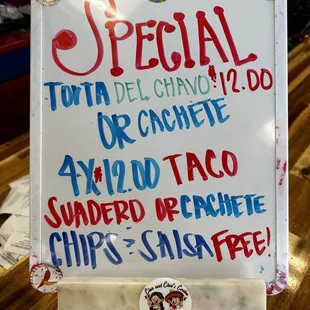 SPECIAL
TORTA DEL CHAVO $12.00
OR CACHETE
4X$12.00 TACO
SUADERO OR CACHETE
CHIPS & SALSA FREE!